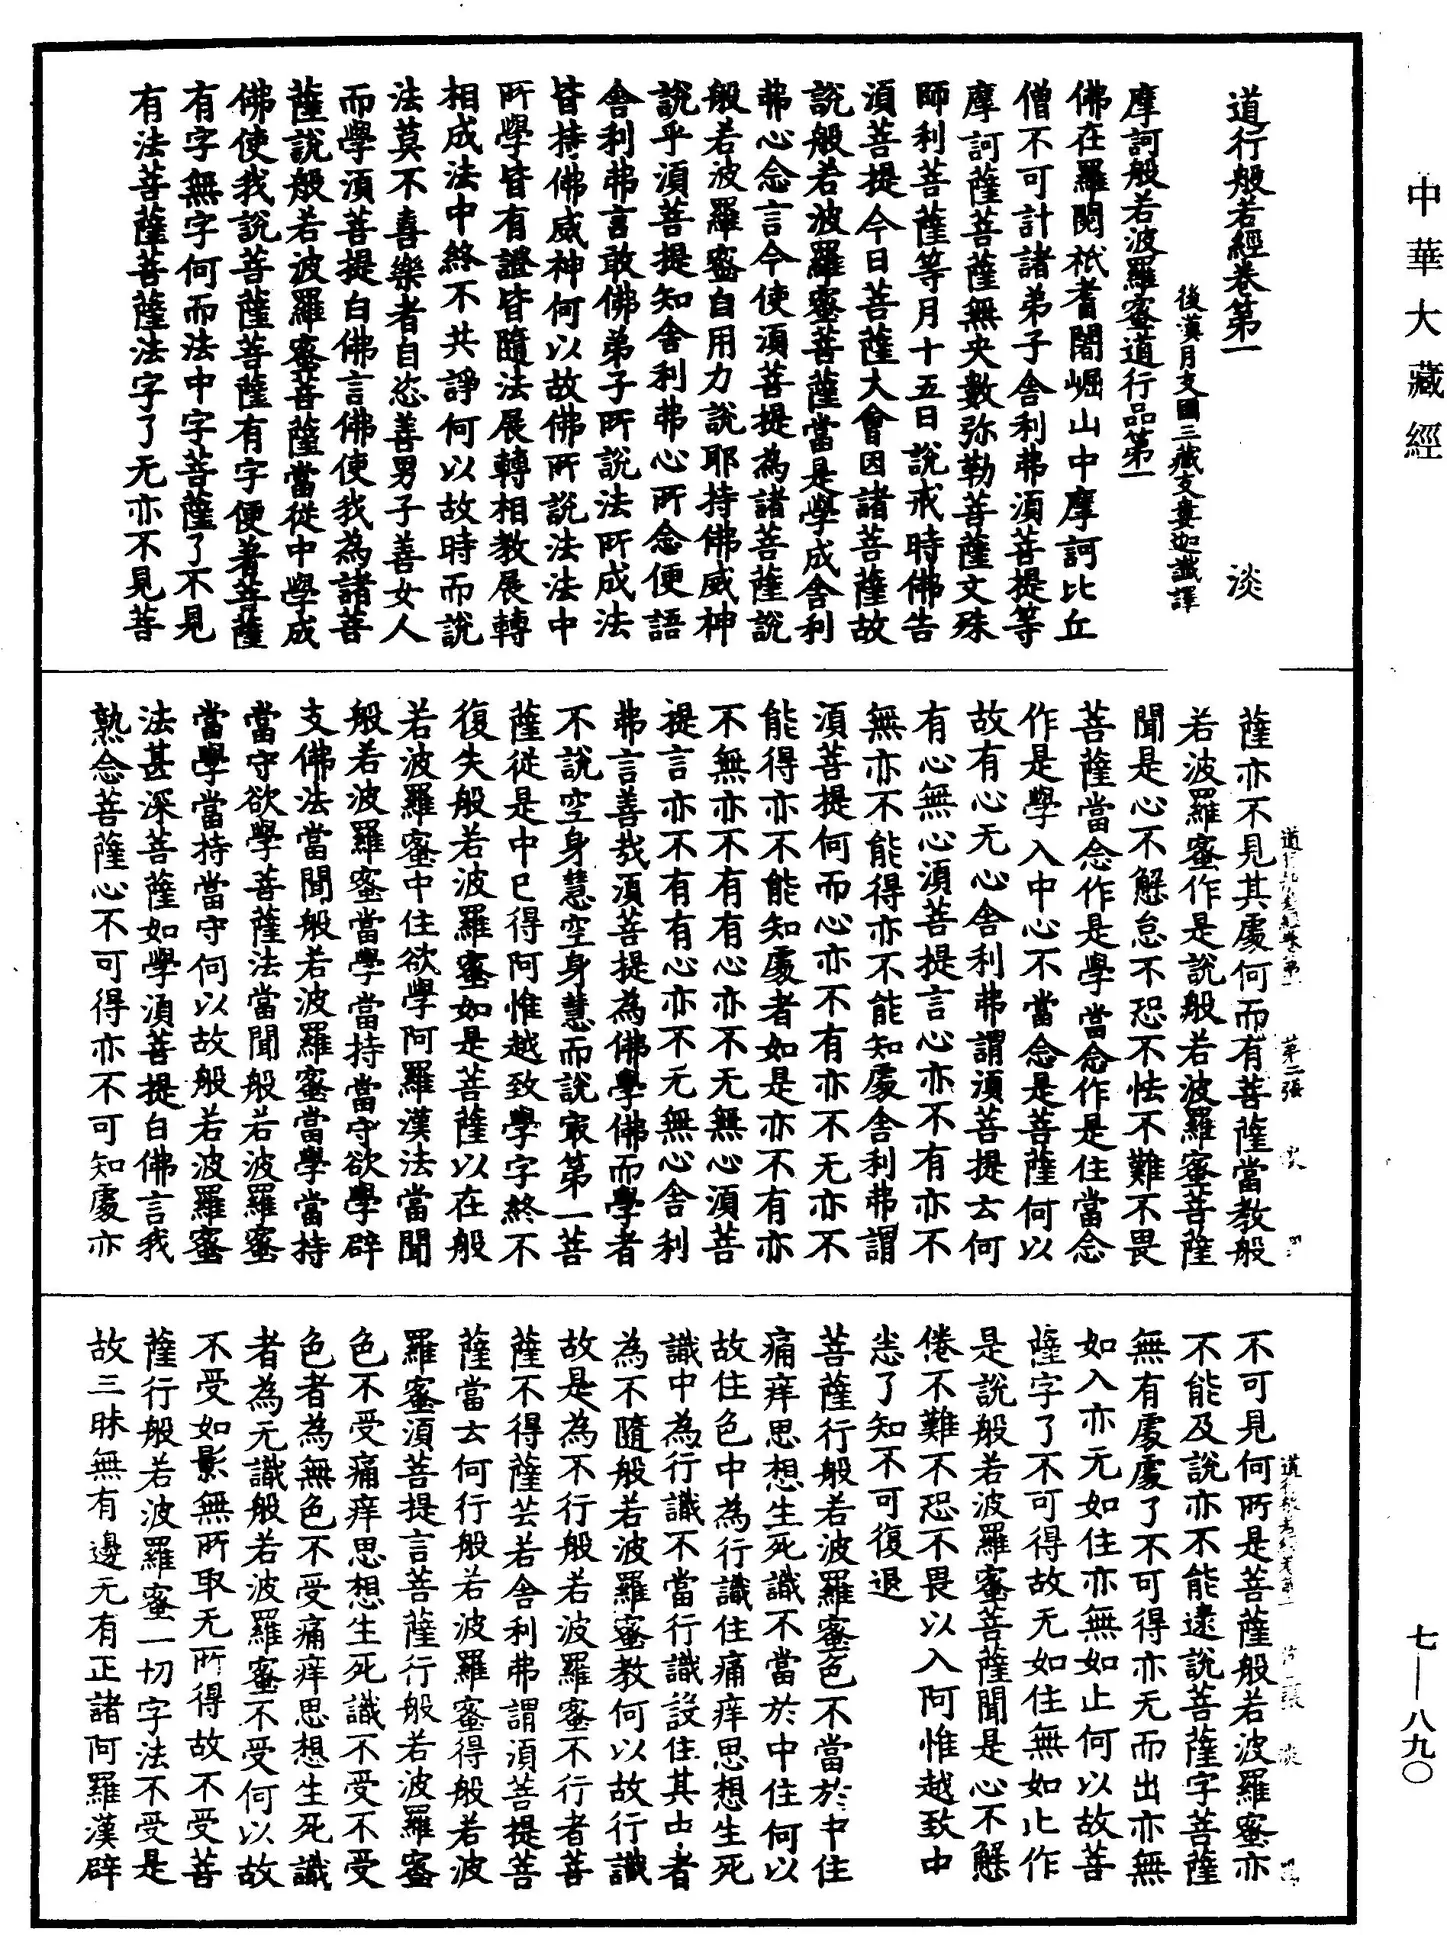 中華大藏經
道行般若經卷第一　淡
後漢月支國三藏支婁迦讖譯
摩訶般若波羅蜜道行品第一
佛在羅閱祇耆闍崛山中摩訶比丘
僧不可計諸弟子舍利弗須菩提等
摩訶薩菩薩無央數弥勒菩薩文殊
師利菩薩等月十五日說戒時佛告
須菩提今日菩薩大會因諸菩薩故
說般若波羅蜜菩薩當是學成舍利
弗心念言今使須菩提為諸菩薩說
般若波羅蜜自用力說耶持佛威神
說乎須菩提知舍利弗心所念便語
舍利弗言敢佛弟子所說法所成法
皆持佛威神何以故佛所說法法中
所學皆有證皆隨法展轉相教展轉
相成法中終不共諍何以故時而說
法莫不喜樂者自恣善男子善女人
而學須菩提白佛言佛使我為諸菩
薩說般若波羅蜜菩薩當從中學成
佛使我說菩薩菩薩有字便著菩薩
有字無字何而法中字菩薩了不見
有法菩薩菩薩法字了无亦不見菩
薩亦不見其處何而有菩薩當教般
若波羅蜜作是說般若波羅蜜菩薩
聞是心不懈怠不恐不怯不難不畏
菩薩當念作是學當念作是住當念
作是學入中心不當念是菩薩何以
故有心无心舍利弗謂須菩提云何
有心無心須菩提言心亦不有亦不
無亦不能得亦不能知處舍利弗謂
須菩提何而心亦不有亦不无亦不
能得亦不能知處者如是亦不有亦
不無亦不有有心亦不无無心須菩
提言亦不有有心亦不无無心舍利
弗言善哉須菩提為佛學佛而學者
不說空身慧空身慧而說最第一菩
薩從是中已得阿惟越致學字終不
復失般若波羅蜜如是菩薩以在般
若波羅蜜中住欲學阿羅漢法當聞
般若波羅蜜當學當持當守欲學辟
支佛法當聞般若波羅蜜當學當持
當守欲學菩薩法當聞般若波羅蜜
當學當持當守何以故般若波羅蜜
法甚深菩薩如學須菩提白佛言我
熟念菩薩心不可得亦不可知處亦
第二張
不可見何所是菩薩般若波羅蜜亦
不能及說亦不能逮說菩薩字菩薩
無有處處了不可得亦无而出亦無
如入亦无如住亦無如止何以故菩
薩字了不可得故无如住無如止作
是說般若波羅蜜菩薩聞是心不懈
倦不難不恐不畏以入阿惟越致中
悉了知不可復退
菩薩行般若波羅蜜色不當於中住
痛痒思想生死識不當於中住何以
故住色中為行識住痛痒思想生死
識中為行識不當行識設住其中者
為不隨般若波羅蜜教何以故行識
故是為不行般若波羅蜜不行者菩
薩不得薩芸若舍利弗謂須菩提菩
薩當云何行般若波羅蜜得般若波
羅蜜須菩提言菩薩行般若波羅蜜
色不受痛痒思想生死識不受不受
色者為無色不受痛痒思想生死識
者為无識般若波羅蜜不受何以故
不受如影無所取无所得故不受菩
薩行般若波羅蜜一切字法不受是
故三昧無有邊无有正諸阿羅漢辟
七—八九〇